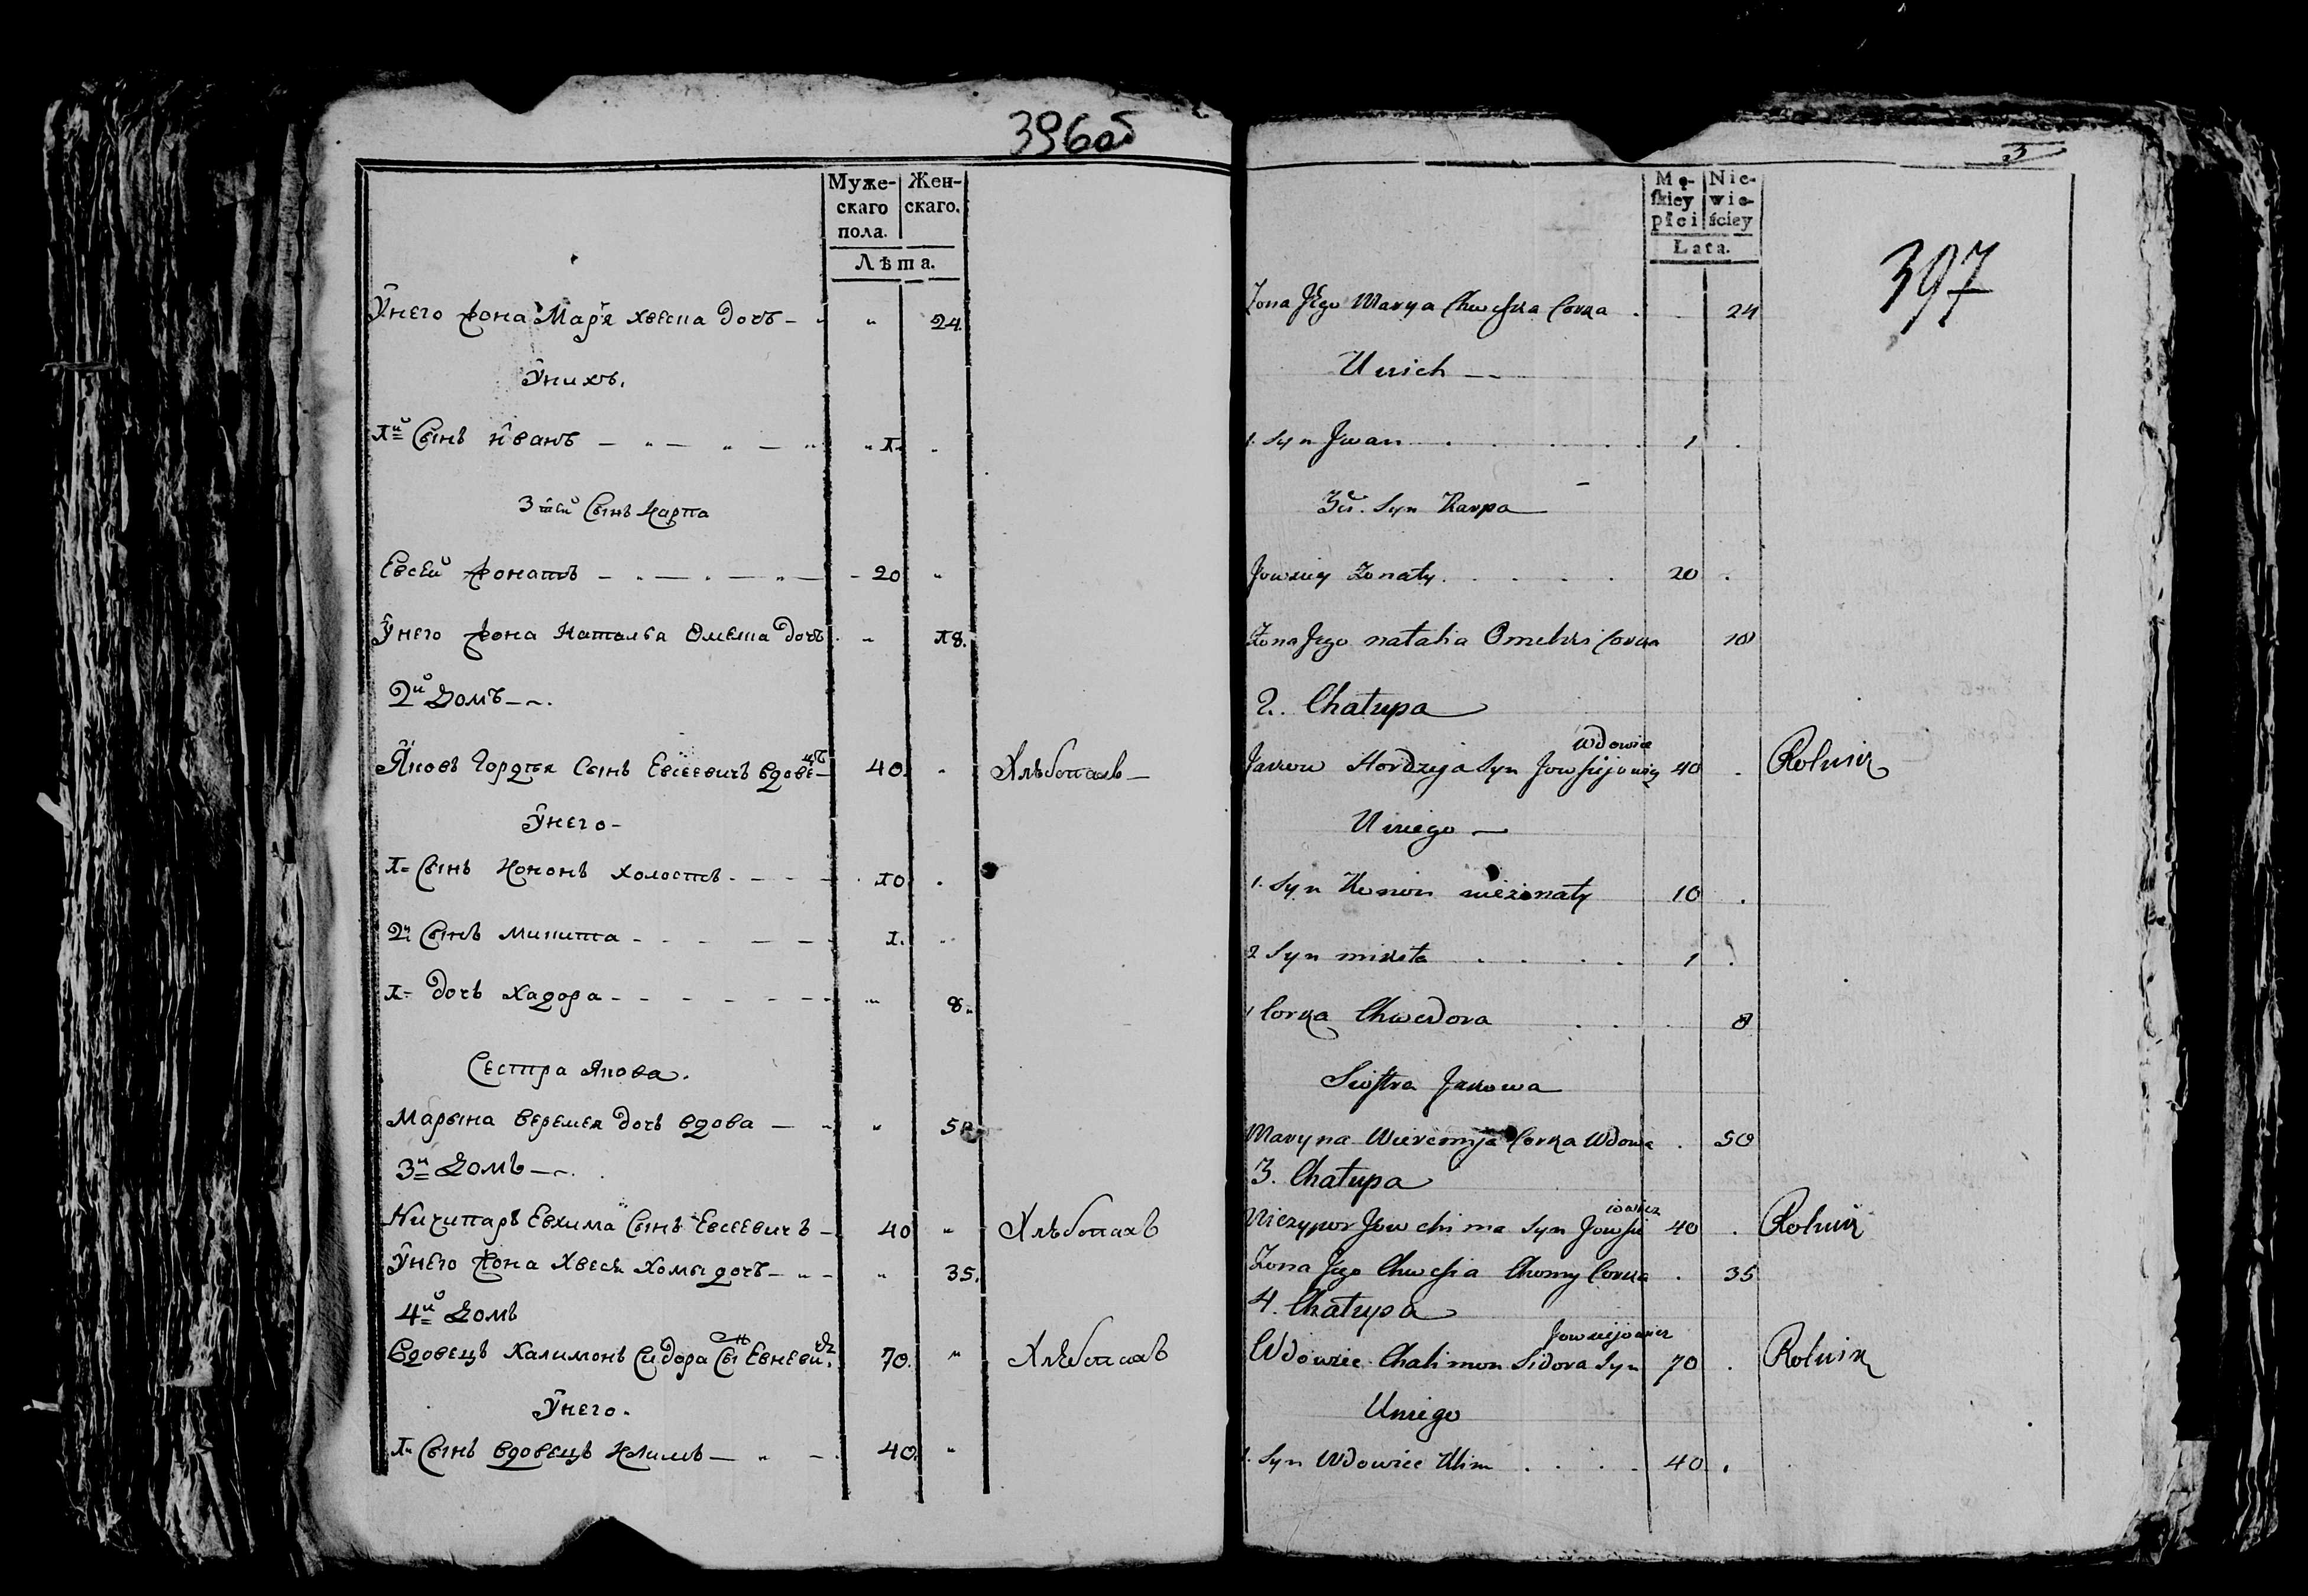 396об
Муже-
скаго
пола.
Жен-
скаго.
Лѣта.
Ўнего жона Марья хвеська дочъ 24.
Ўнихъ.
1й Сынъ Иванъ 1.
3тей Сынъ Карпа
Евсей жонатъ 20
Ўнего жона Наталья Омелька дочь 18.
2й Домъ
Яковъ Гордѣя Сынъ Евсеевичъ вдовецъ 40. Хлѣбопахъ
Ўнего
1 Сынъ Кононъ холостъ 10
2й Сынъ микита 1.
1 дочь хадора 8.
Сестра Якова.
Марына веремея дочь вдова 50
3й Домъ
Ничипаръ Евхима Сынъ Евсеевичъ 40 Хлѣбопахъ
Ўнего жона Хвеся Хомы дочъ 35.
4й Домъ
Вдовецъ Халимонъ Сидора Сынъ 70. Хлѣбопахъ
Ўнего.
1й Сынъ вдовецъ Климъ 40.
3
Mę-
skiey
płci
Nie-
wie-
ściey
Lata.
397
Zona Jego Marya Chweska Corka 24
U nich
1. Syn Jwan 1
3ci. Syn Karpa
Jowsiey Zonaty 20
Zona Jego natalia Omelki Corka 18
2. Chałupa
Jakow Hordzieja Syn Jowsiejowicz Wdowiec 40 Rolnik
U niego
1. Syn Konon niezonaty 10
2 Syn mikita 1
1 Corka Chwedora 8
Siostra Jakowa
Maryna Wieremija Corka Wdowa 50
3. Chałupa
Niczypor Jowchima Syn Jowsieiowicz 40 Rolnik
Zona Jego Chwesia Chomy Corka 35
4. Chałupa
Wdowiec Chalimon Sidora Syn Jowsiejowicz 70 Rolnik
U niego
1. Syn Wdowiec Klim 40